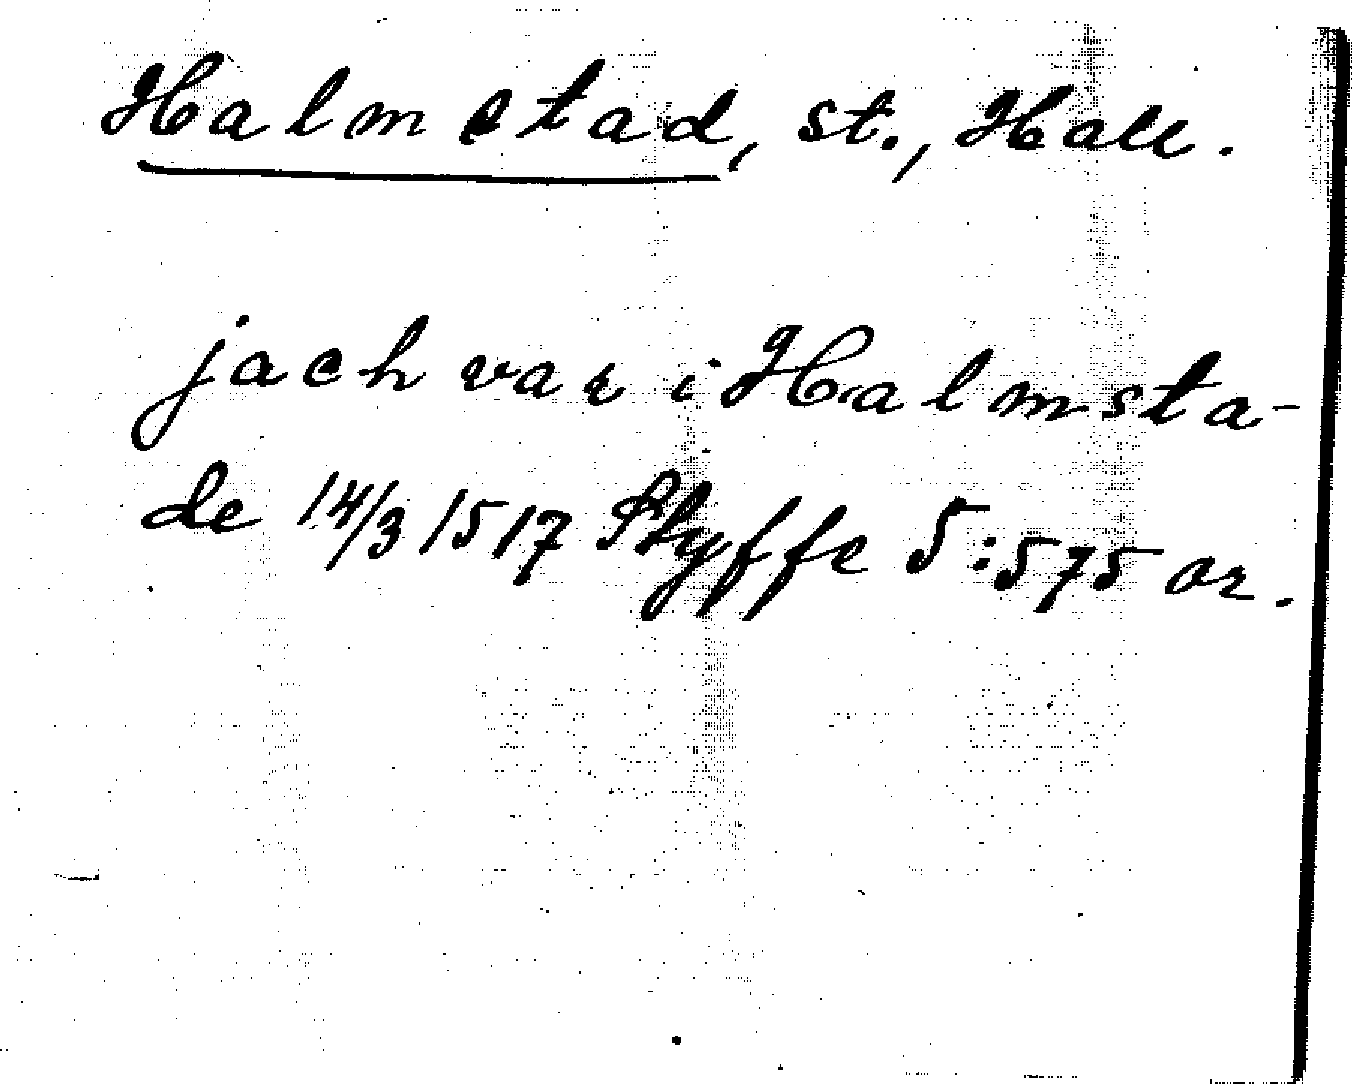 Halmstad, st., Hall.
jach var i Halmsta-
de 14/3 1517 Styffe 5:575 or.